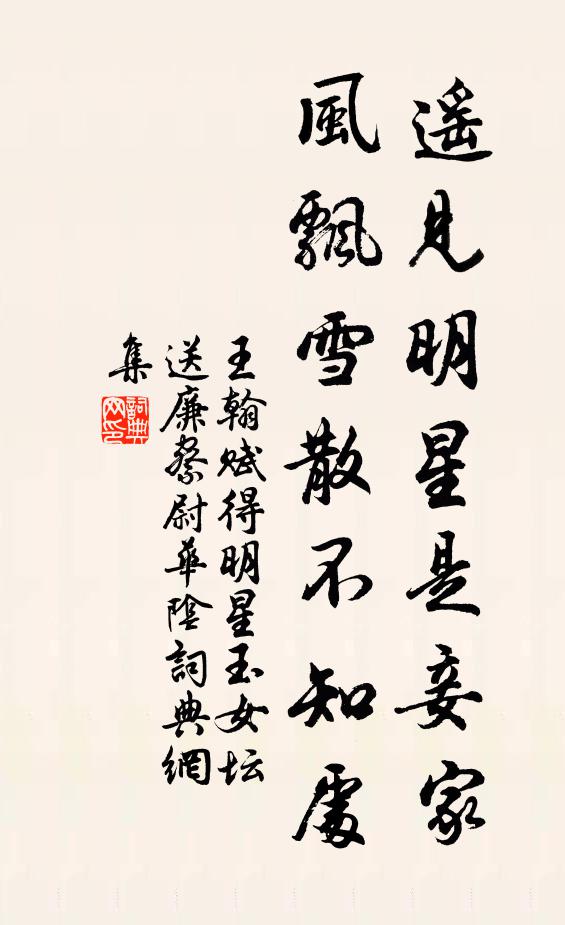 遥見明星是妾家
風飄雪散不知處
王翰賦得明星玉女坛
送廉察尉華陰詞典網
集
詞典
网印